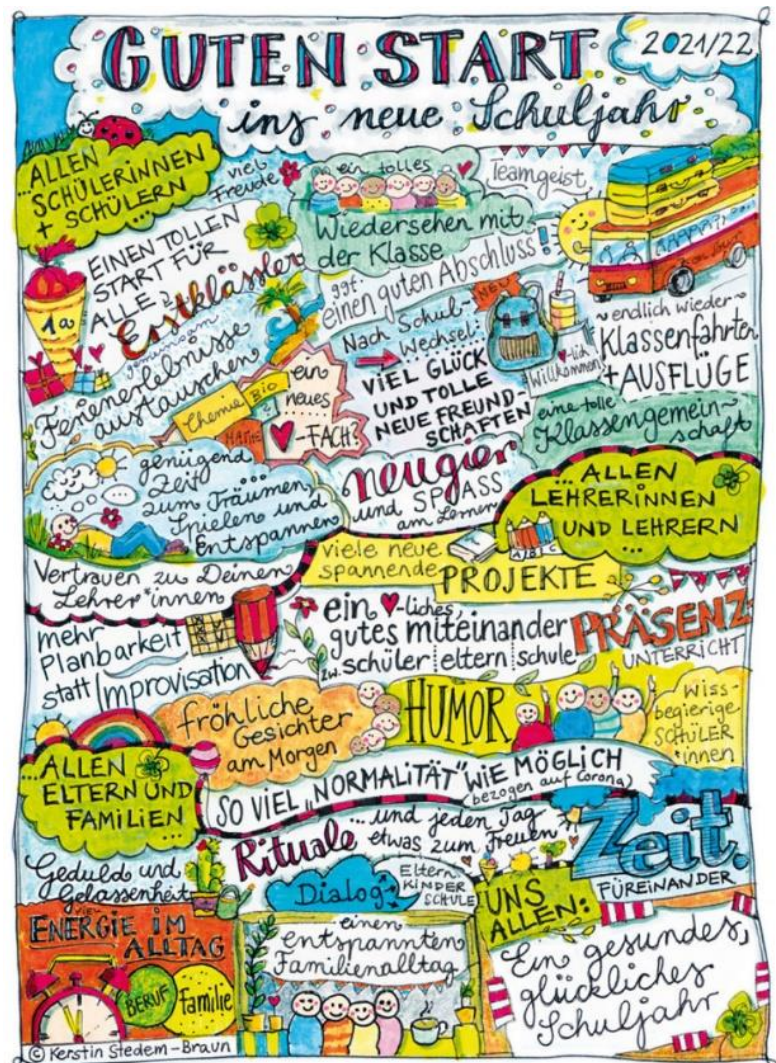 GUTEN START
2021/22
ins neue Schuljahr
...ALLEN
SCHÜLERINNEN
+ SCHÜLERN
...
viel
Freude
ein tolles
Wiedersehen mit
der Klasse
Teamgeist
EINEN TOLLEN
START FÜR
ALLE
Erstklässler
1a
ggf.
einen guten Abschluss!
NEU
Nach Schul-
Wechsel:
VIEL GLÜCK
UND TOLLE
NEUE FREUND-
SCHAFTEN
♥-lich
Willkommen
~endlich wieder~
Klassenfahrten
+AUSFLÜGE
gemeinsam
Ferienerlebnisse
austauschen
Chemie
Bio
MATHE
ein
neues
♥-FACH?
eine tolle
Klassengemein-
schaft
genügend
Zeit
zum Träumen,
Spielen und
Entspannen
neugier
und SPASS
am Lernen
...ALLEN
LEHRERINNEN
UND LEHRERN
...
Vertrauen zu Deinen
Lehrer*innen
viele neue
spannende
PROJEKTE
A B C
mehr
Planbarkeit
statt Improvisation
ein ♥-liches,
gutes miteinander
zw. schüler eltern schule
PRÄSENZ-
UNTERRICHT
fröhliche
Gesichter
am Morgen
HUMOR
Wiss-
begierige
SCHÜLER
*innen
...ALLEN
ELTERN UND
FAMILIEN
...
SO VIEL „NORMALITÄT“ WIE MÖGLICH
(bezogen auf Corona)
Rituale
...und jeden Tag
etwas zum Freuen
Zeit.
FÜREINANDER
Geduld und
Gelassenheit
Dialog
Eltern
KINDER
SCHULE
UNS
ALLEN:
VIEL
ENERGIE IM
ALLTAG
BERUF
Familie
einen
entspannten
Familienalltag
Ein gesundes,
glückliches
Schuljahr
© Kerstin Stedem-Braun